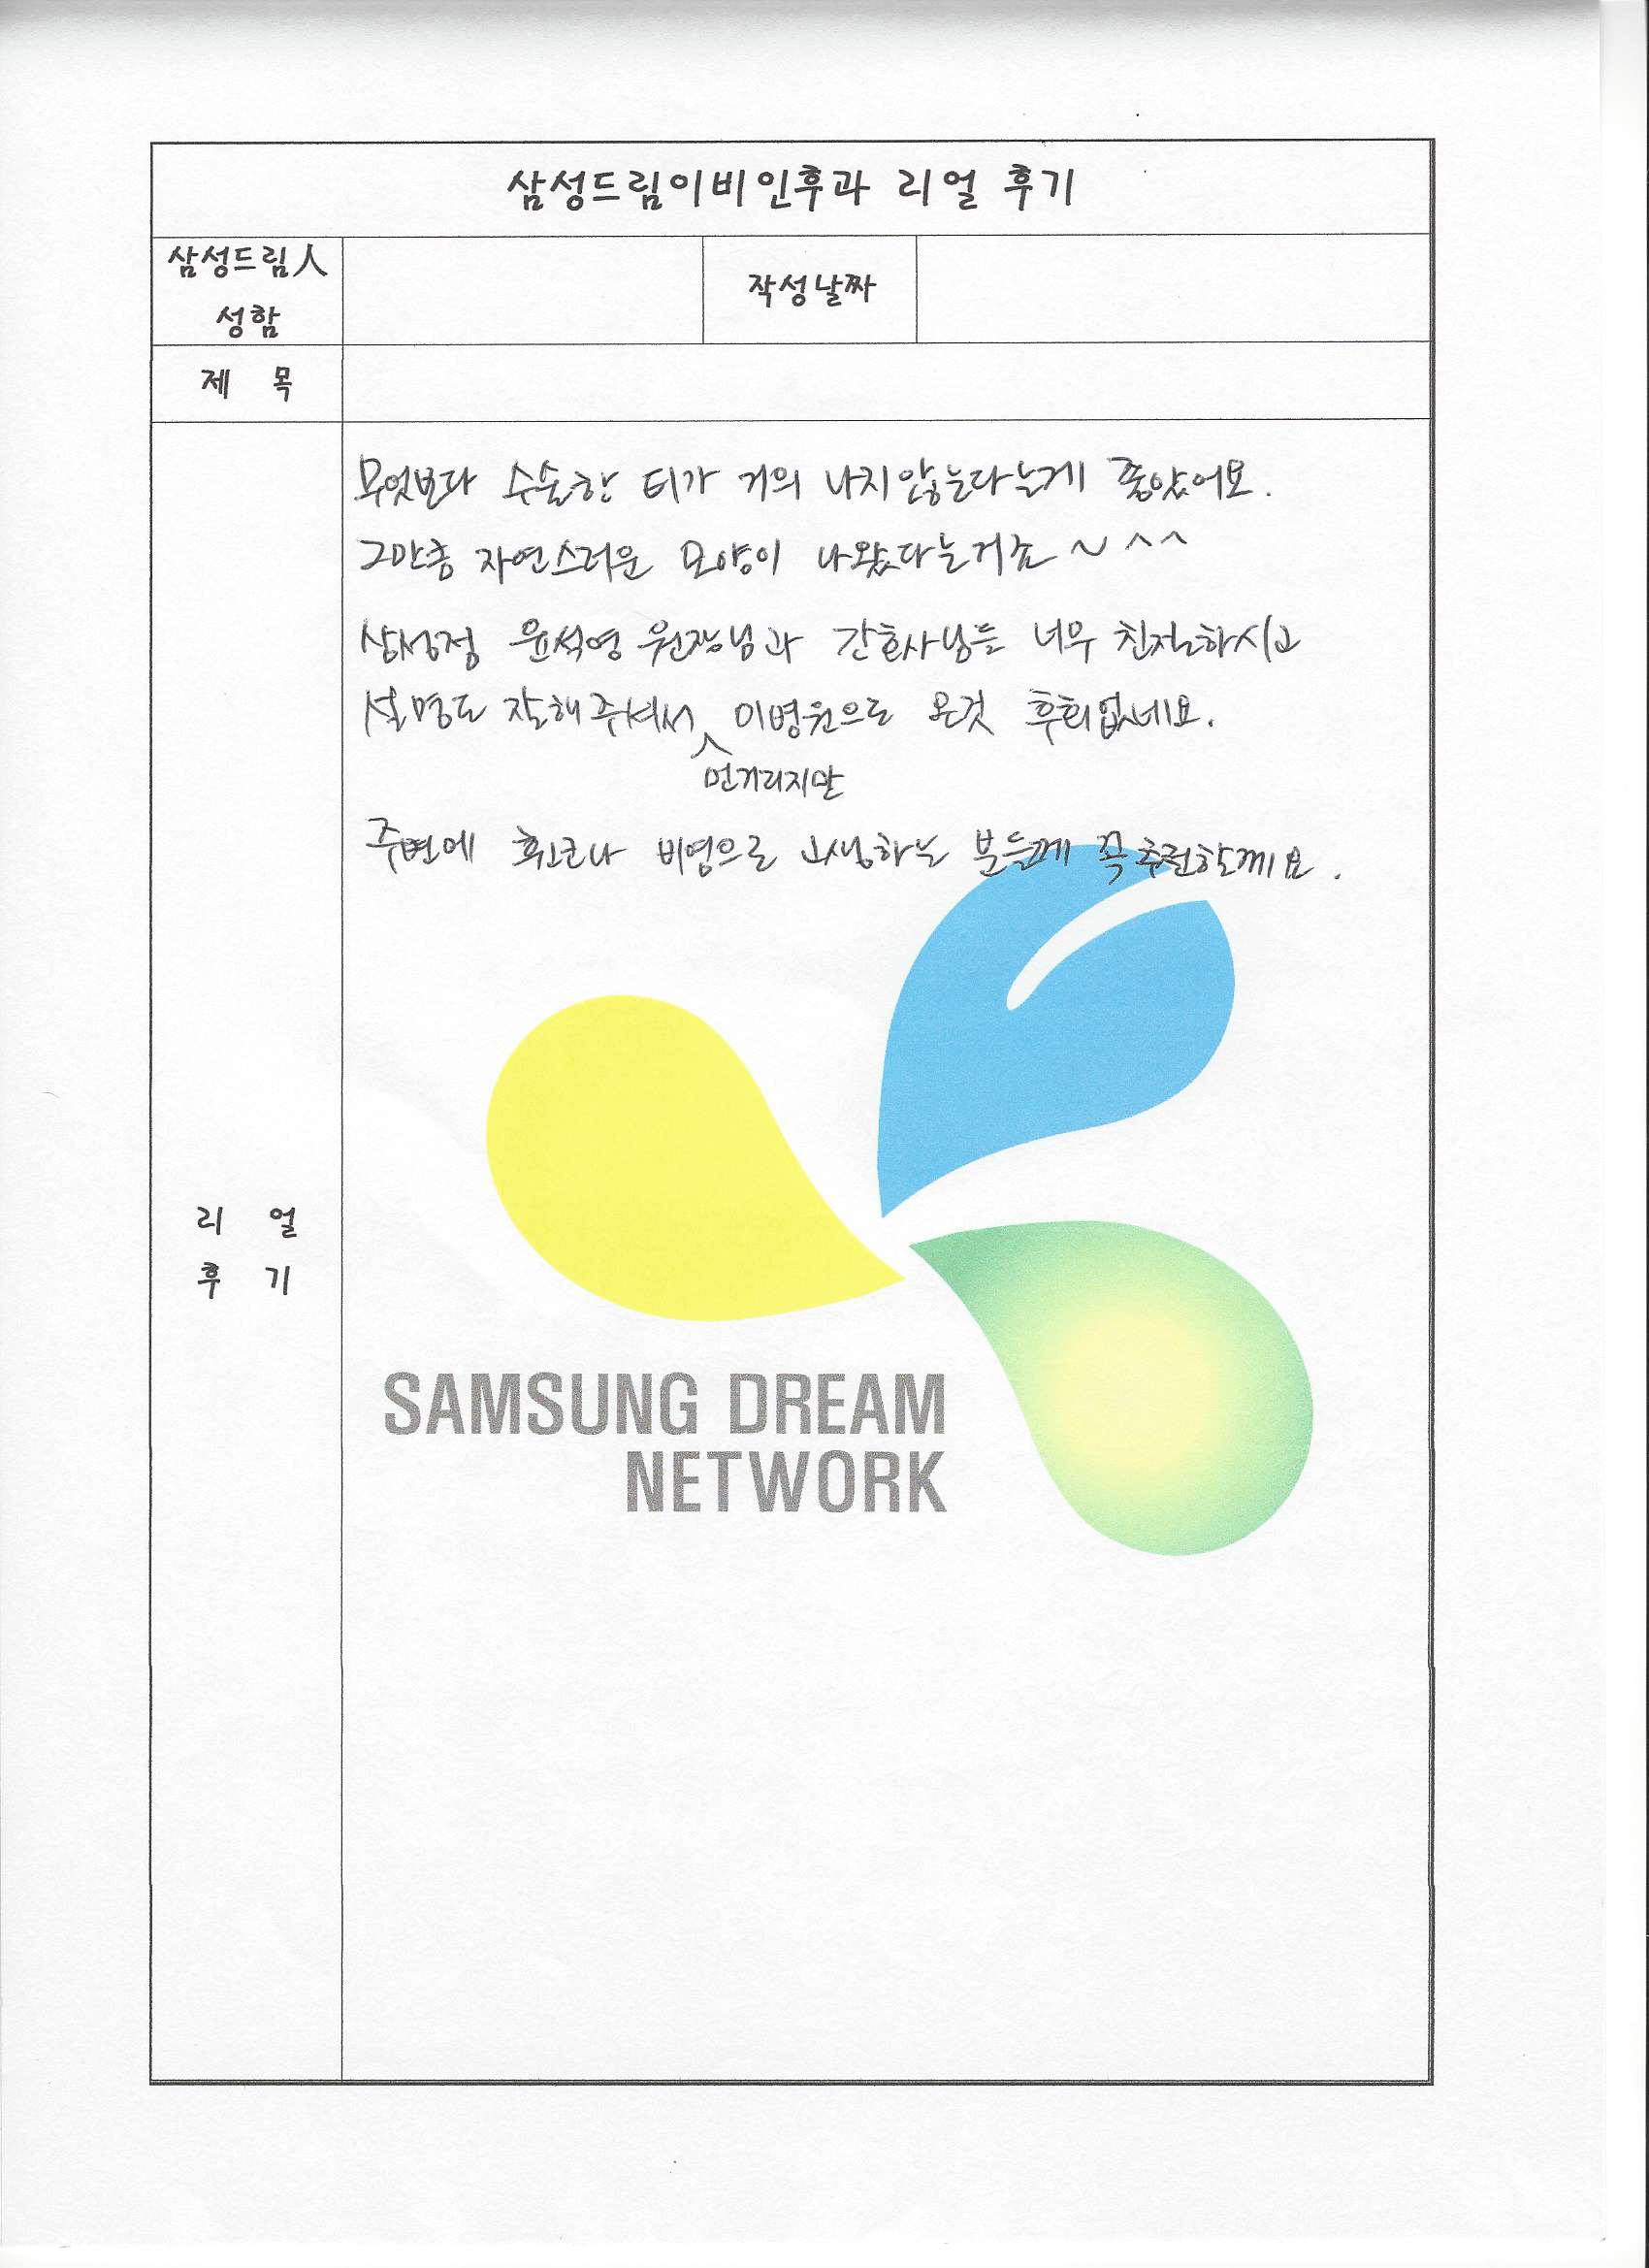 삼성드림이비인후과 리얼 후기
삼성드림人
성함
작성날짜
제 목
무엇보다 수술한 티가 거의 나지않는다는게 좋았어요.
그만큼 자연스러운 모양이 나왔다는거죠~ ^^
삼성점 윤석영 원장님과 간호사님들 너무 친절하시고
설명도 잘해주셔서 이병원으로 온것 후회없네요.
먼거리지만
주변에 휘코나 비염으로 고생하는 분들께 꼭 추천할께요.
리 얼
후 기
SAMSUNG DREAM
NETWORK